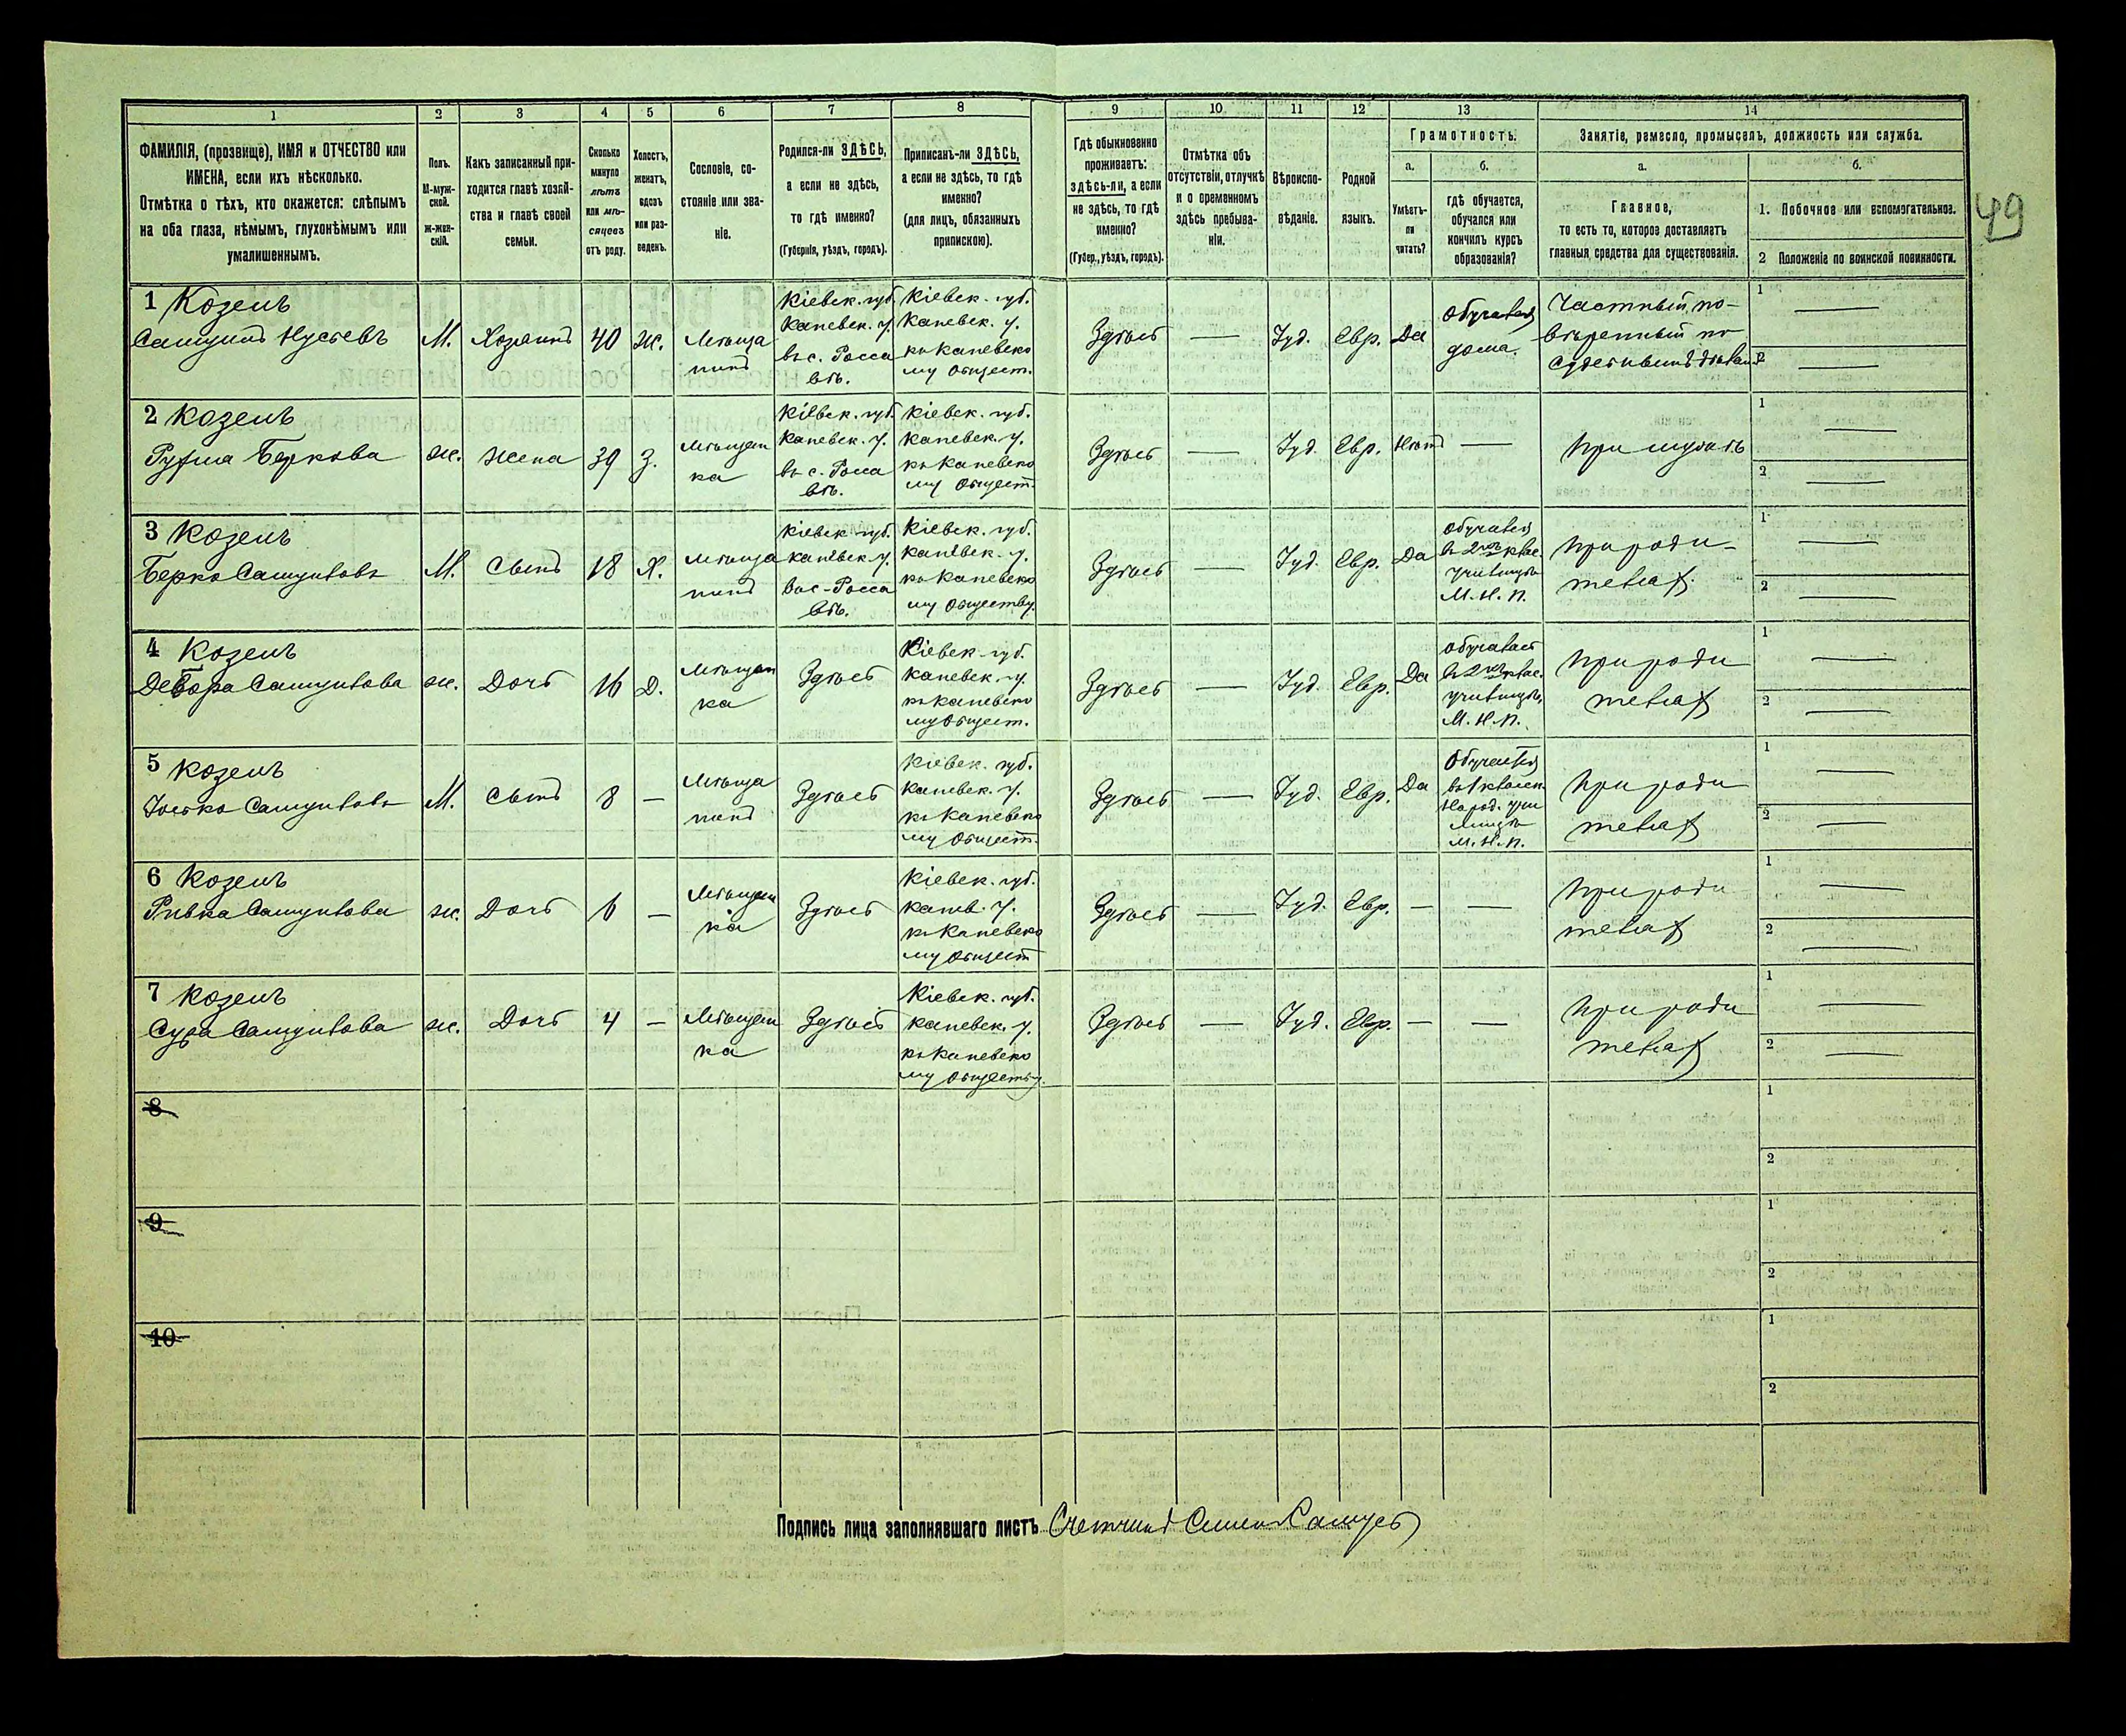 1 2 3 4 5 6 7 8 9 10 11 12 13 14
ФАМИЛІЯ, (прозвище), ИМЯ и ОТЧЕСТВО или
ИМЕНА, если ихъ нѣсколько.
Отмѣтка о тѣхъ, кто окажется: слѣпымъ
на оба глаза, нѣмымъ, глухонѣмымъ или
умалишеннымъ.
Полъ.
М-муж-
ской.
Ж-жен-
скій.
Какъ записанный при-
ходится главѣ хозяй-
ства и главѣ своей
семьи.
Сколько
минуло
лѣтъ
или мѣ-
сяцевъ
отъ роду.
Холостъ,
женатъ,
вдовъ
или раз-
веденъ.
Сословіе, со-
стояніе или зва-
ніе.
Родился-ли ЗДѢСЬ,
а если не здѣсь,
то гдѣ именно?
(Губернія, уѣздъ, городъ).
Приписанъ-ли ЗДѢСЬ,
а если не здѣсь, то гдѣ
именно?
(для лицъ, обязанныхъ
припискою).
Гдѣ обыкновенно
проживаетъ:
здѣсь-ли, а если
не здѣсь, то гдѣ
именно?
(Губер., уѣздъ, городъ).
Отмѣтка объ
отсутствіи, отлучкѣ
и о временномъ
здѣсь пребыва-
ніи.
Вѣроиспо-
вѣданіе.
Родной
языкъ.
Грамотность.
а.
Умѣетъ-
ли
читать?
б.
гдѣ обучается,
обучался или
кончилъ курсъ
образованія?
Занятіе, ремесло, промыселъ, должность или служба.
а.
Главное,
то есть то, которое доставляетъ
главныя средства для существованія.
б.
1. Побочное или вспомогательное.
2 Положеніе по воинской повинности.
49
1 Козелъ
Самуилъ
М.
Хозяинъ
40
ж.
Мѣща
нинъ
Кіевск. губ.
Каневск. у.
въ с. Росса
вѣ.
Кіевск. губ.
Каневск. у.
къ Каневско
му Общест.
Здѣсь
—
Іуд.
Евр.
Да
Обучался
дома.
Частный по-
вѣренный по
судебнымъ дѣламъ
1 —
2 —
2 Козелъ
Рухла Беркова
ж.
Жена
39
З.
Мѣщан
ка
Кіевск. губ.
Каневск. у.
въ с. Росса
вѣ.
Кіевск. губ.
Каневск. у.
къ Каневско
му Общест.
Здѣсь
—
Іуд.
Евр.
Нѣтъ
—
При мужѣ
1 —
2 —
3 Козелъ
Берко Самуиловъ
М.
Сынъ
18
Х.
Мѣща
нинъ
Кіевск. губ.
Каневск. у.
въ с. Росса
вѣ.
Кіевск. губ.
Каневск. у.
къ Каневско
му Обществу.
Здѣсь
—
Іуд.
Евр.
Да
обучался
въ 2хъ клас.
училищѣ
М. Н. П.
При роди-
теляхъ
1 —
2 —
4 Козелъ
Двойра Самуилова
ж.
Дочь
16
Д.
Мѣщан
ка
Здѣсь
Кіевск. губ.
Каневск. у.
къ Каневско
му Общест.
Здѣсь
—
Іуд.
Евр.
Да
обучалась
въ 2хъ клас.
училищѣ,
М. Н. П.
При роди
теляхъ
1 —
2 —
5 Козелъ
Іосько Самуиловъ
М.
Сынъ
8
—
Мѣща
нинъ
Здѣсь
Кіевск. губ.
Каневск. у.
къ Каневско
му Общест.
Здѣсь
—
Іуд.
Евр.
Да
Обучается
въ 1 класн.
Народ. учи
лищѣ
М. Н. П.
При роди
теляхъ
1 —
2 —
6 Козелъ
Ривка Самуилова
ж.
Дочь
6
—
Мѣщан
ка
Здѣсь
Кіевск. губ.
Канев. у.
къ Каневско
му Общест
Здѣсь
—
Іуд.
Евр.
—
—
При роди
теляхъ
1 —
2 —
7 Козелъ
Сура Самуилова
ж.
Дочь
4
—
Мѣщан
ка
Здѣсь
Кіевск. губ.
Каневск. у.
къ Каневско
му Обществу.
Здѣсь
—
Іуд.
Евр.
—
—
При роди
теляхъ
1 —
2 —
8
1
2
9
1
2
10
1
2
Подпись лица заполнявшаго листъ Счетчикъ